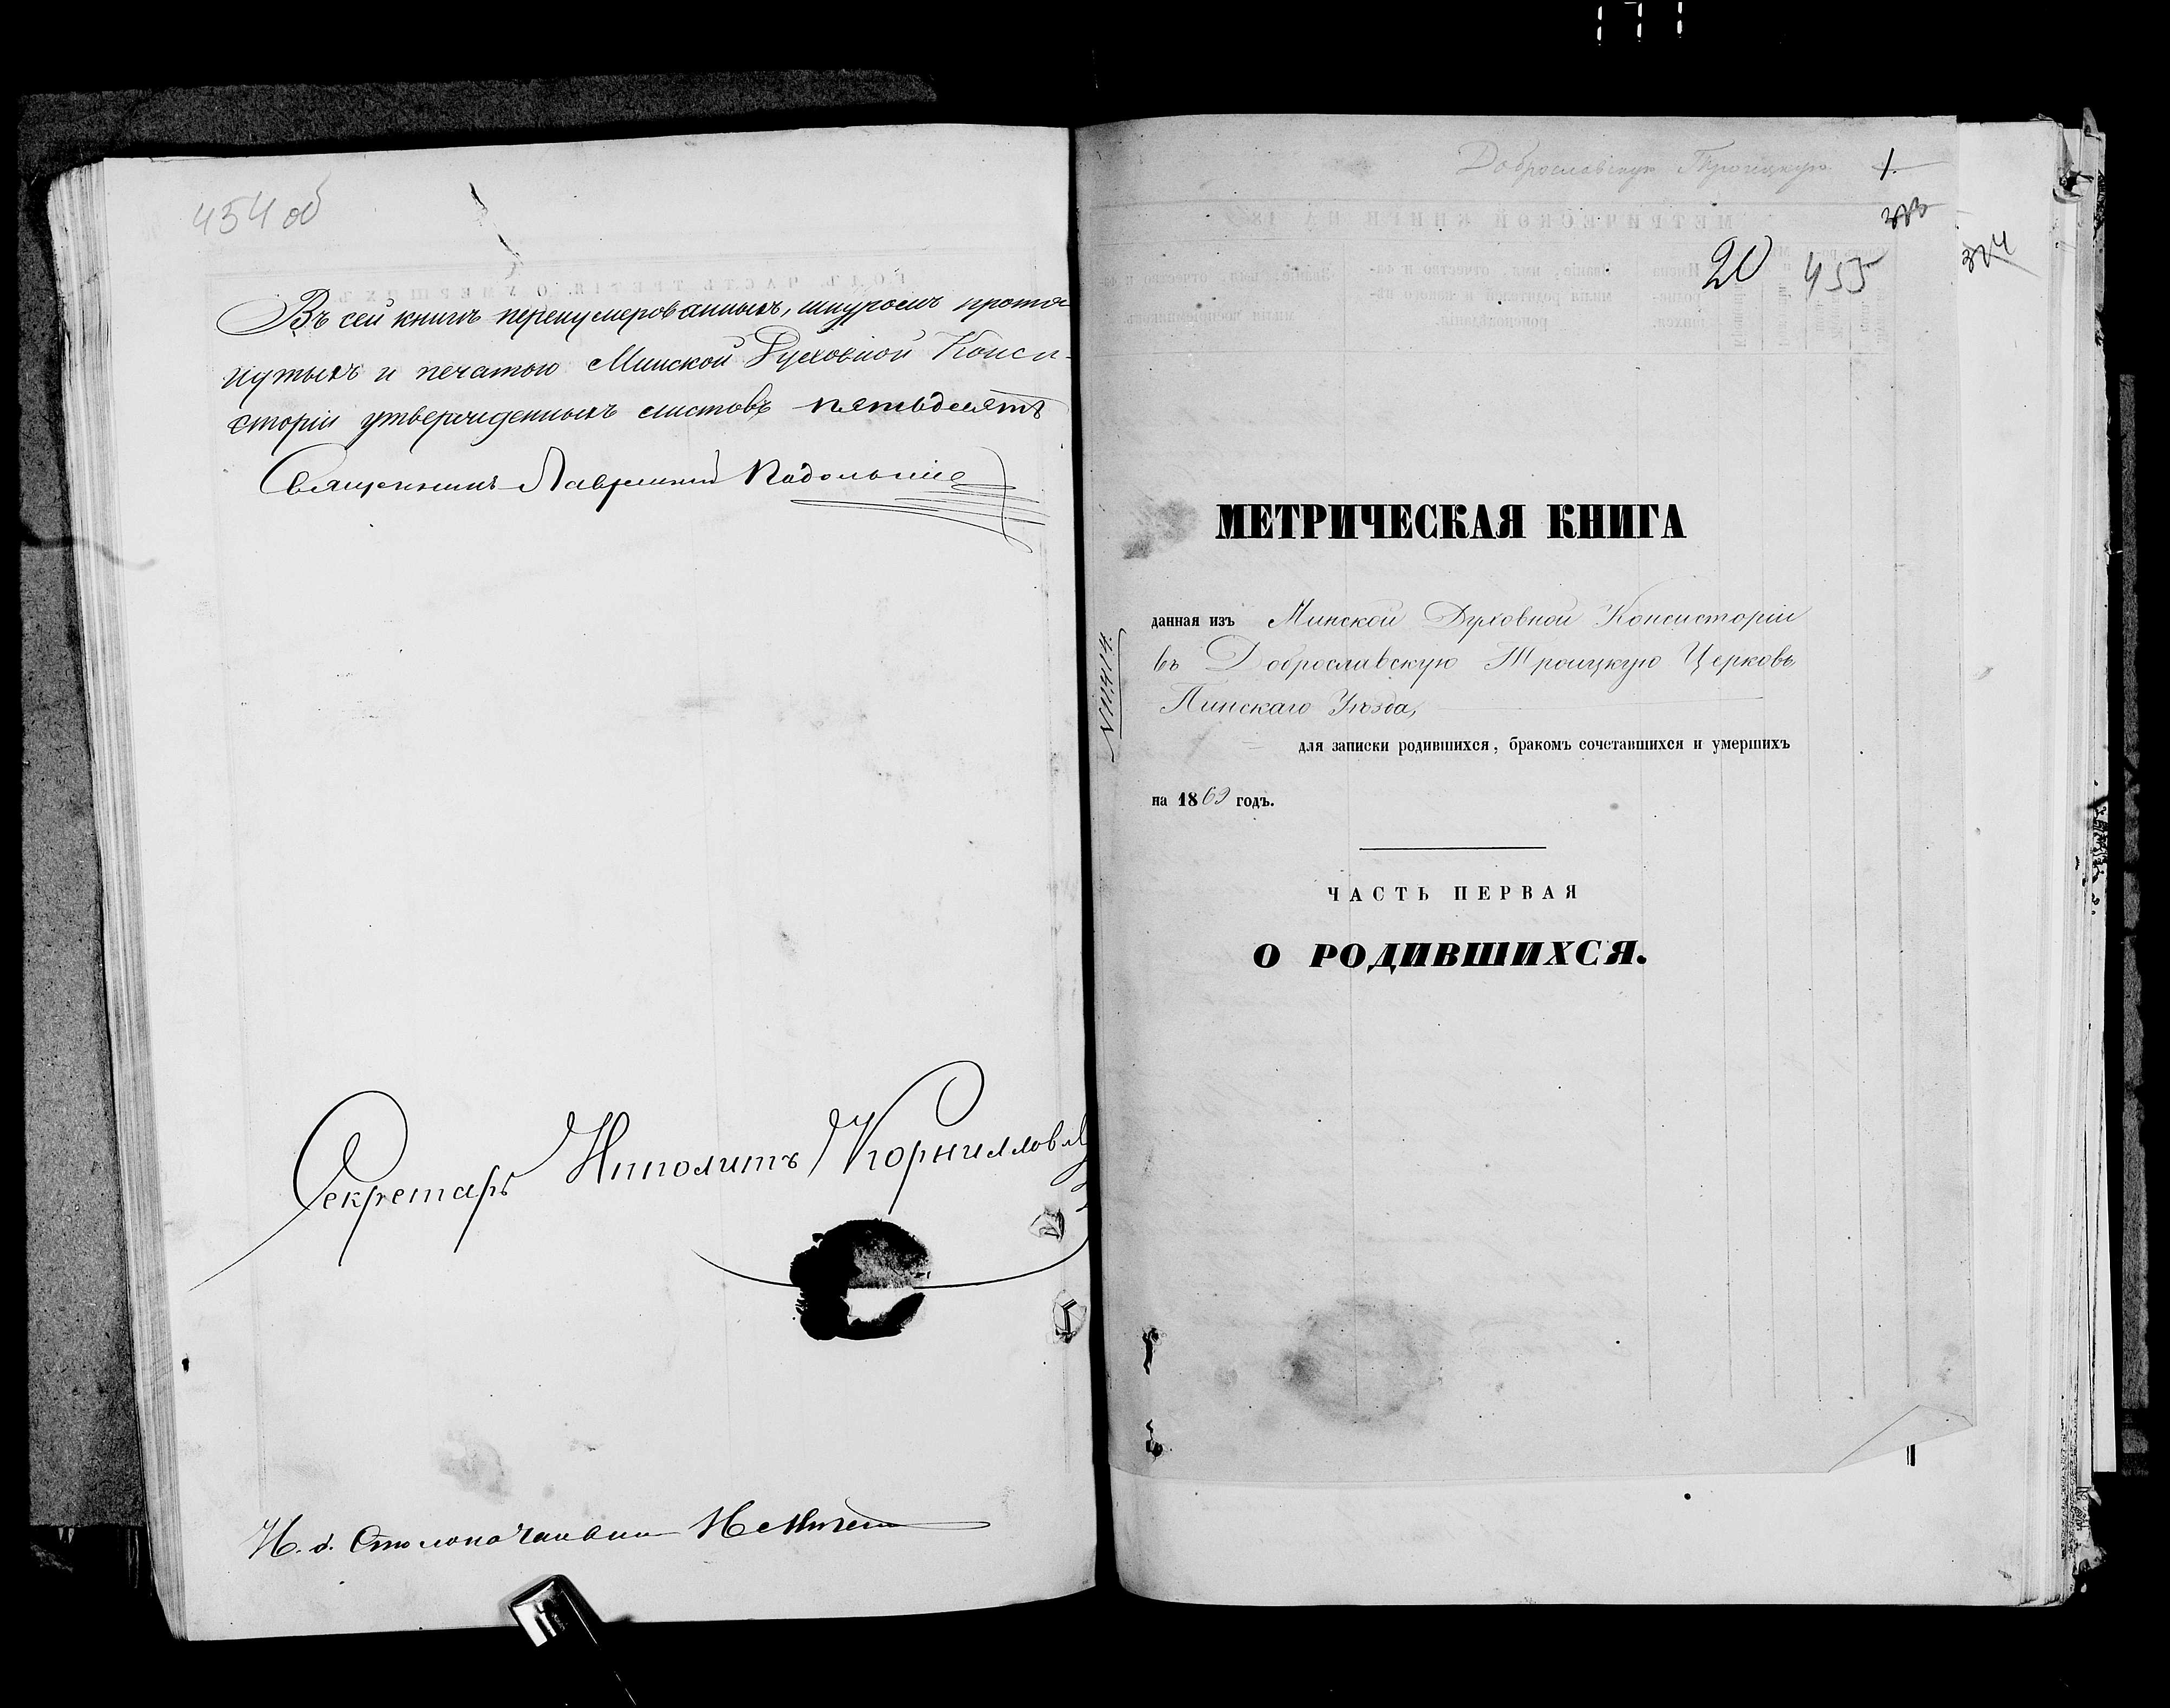 454 об
Въ сей книгѣ перенумерованныхъ, шнуромъ протя-
нутыхъ и печатью Минской Духовной Конси-
сторіи утвержденныхъ листовъ пятьдесятъ
Священникъ Лаврентій Подольскій
Секретарь Ипполитъ Корнилов
И. д. Столоначальника
Доброславскую Троицкую
1.
373
374
20
455
МЕТРИЧЕСКАЯ КНИГА
данная изъ Минской Духовной Консисторіи
въ Доброславскую Троицкую Церковь
Пинскаго Уѣзда,
для записки родившихся, бракомъ сочетавшихся и умершихъ
на 1869 годъ.
N 11414.
ЧАСТЬ ПЕРВАЯ
О РОДИВШИХСЯ.